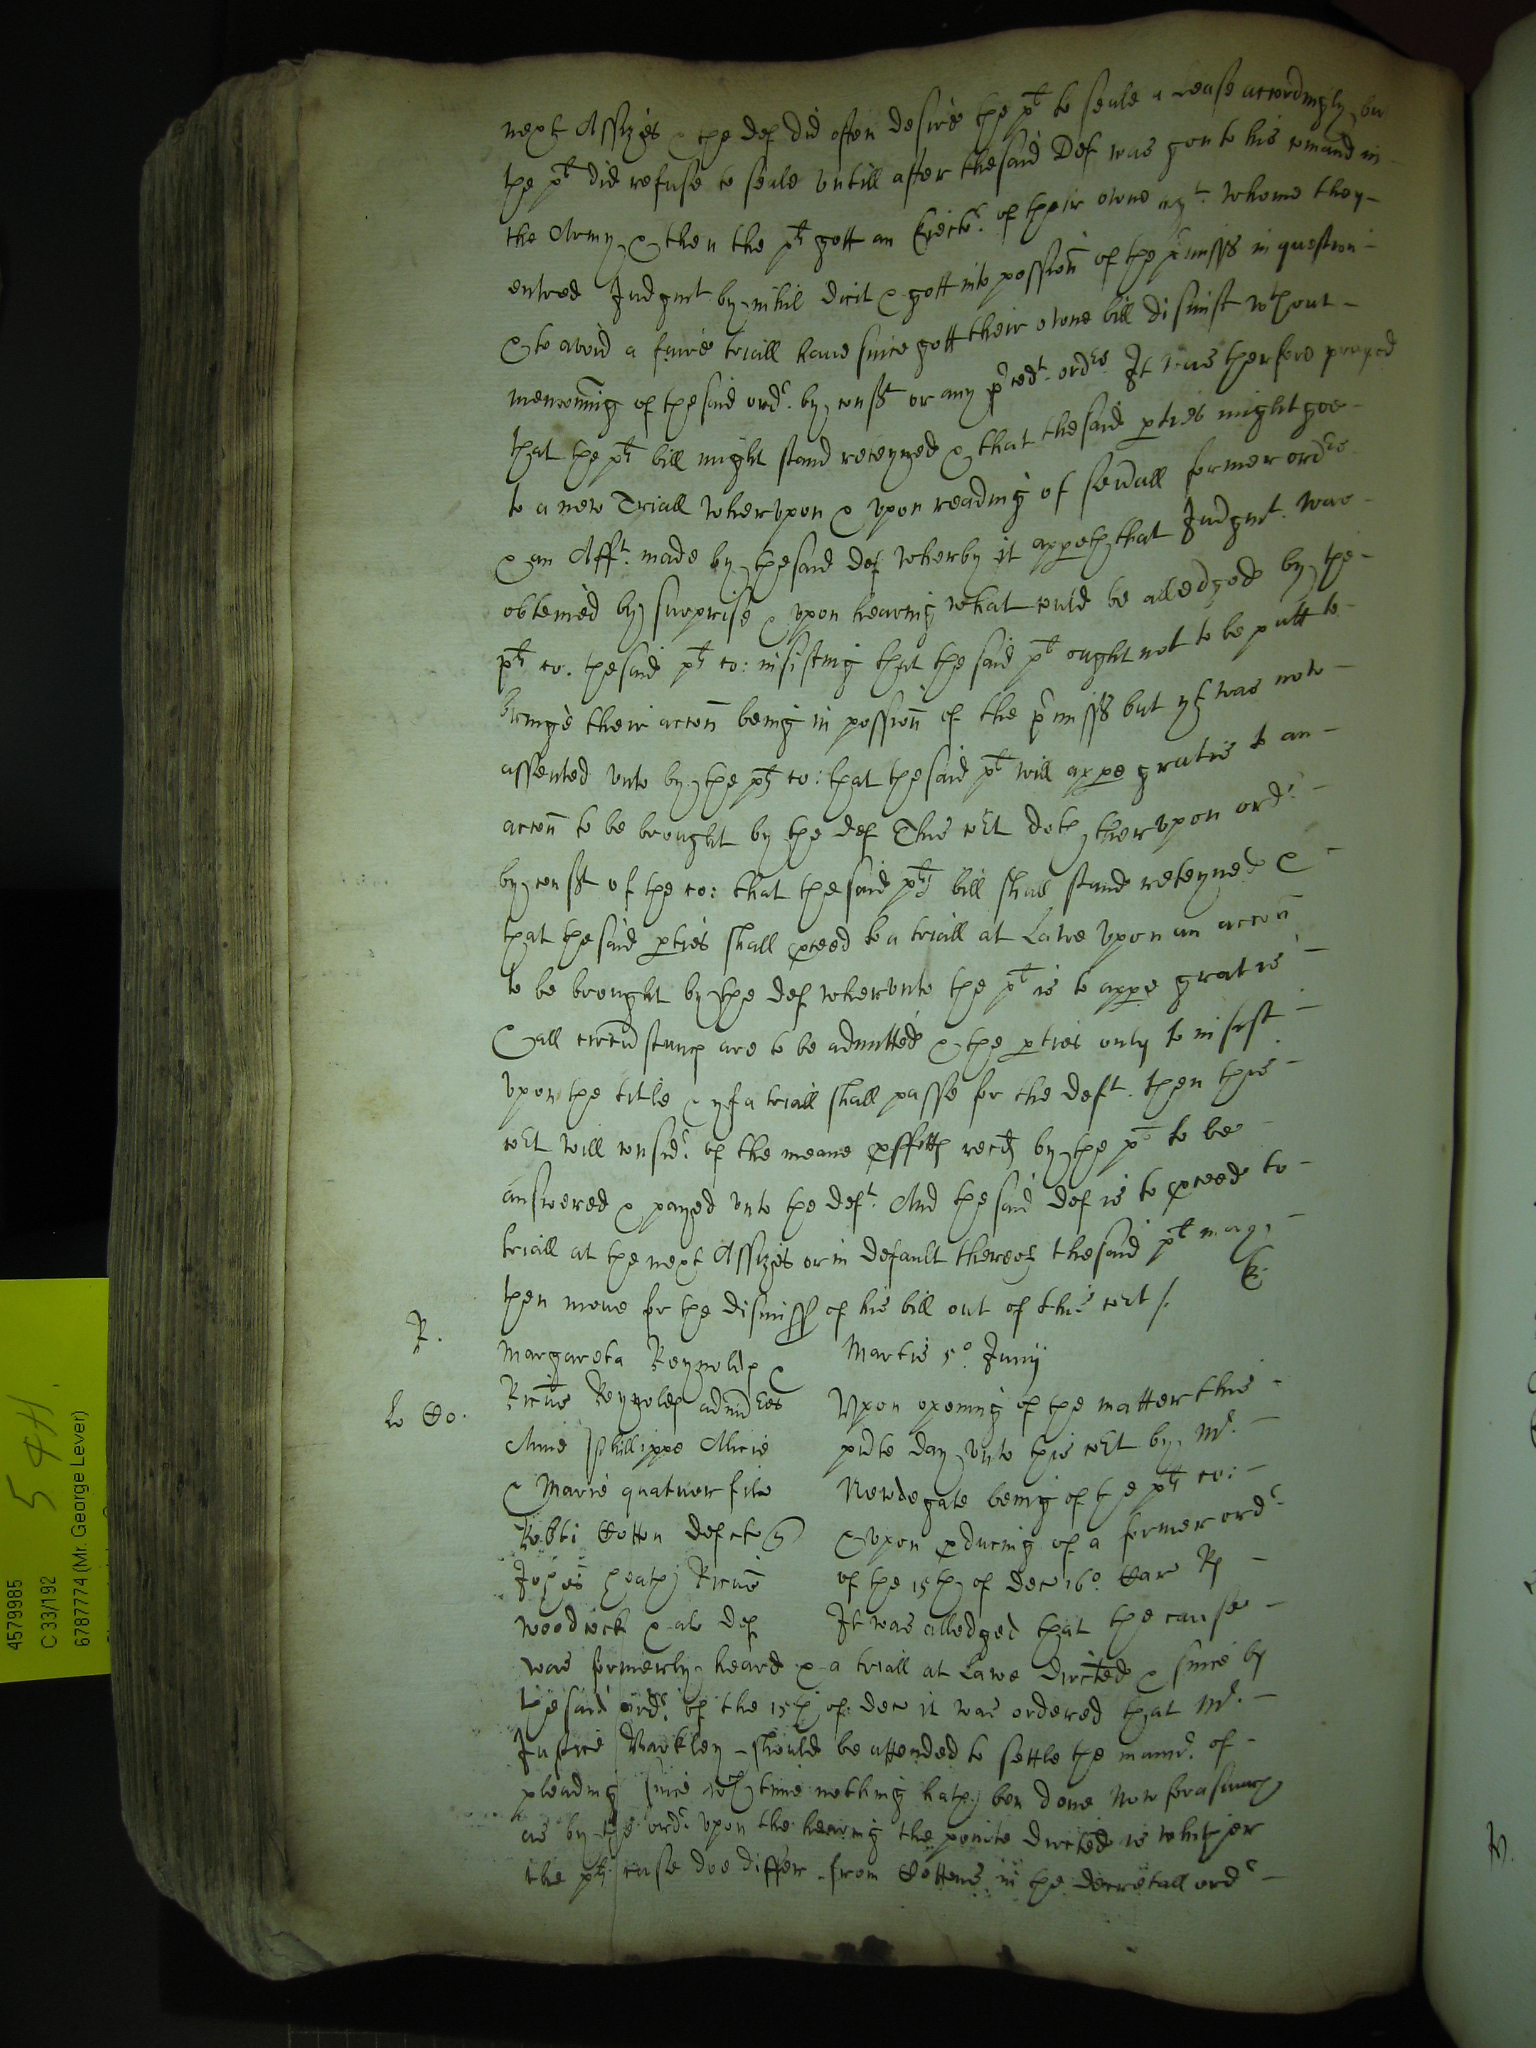 next Assizes & the def did often desire the plt to seale a Lease accordingly but
the plt did refuse to seale untill after the said Def was gon to his comand in
the Army & then the plt gott an Eiectr. of their owne agt. whome they
entred Judgmt by nihil dicit & gott into possion of the pmisss in question
& to avoid a faire triall have since gott their owne bill dismist wthout
menconing of the said ordr. by consst or any pcedt. ordrs It was therfore prayed
that the plt bill might stand reteyned & that the said pties might goe
to a new Triall wherupon & upon reading of sevall former ordrs
& an Afft. made by the said def wherby it appeth that Judgmt. was
obteined by surprise & upon hearing what could be alledged by the
plt co. the said plt co: insisting that the said plt ought not to be putt to
bringe their accon being in possion of the pmisss but yt was now
assented unto by the plt co: that the said plt will appe gratis to an
accon to be brought by the def This cort doth therupon ordr.
by consst of the co: that the said plts bill shall stand reteyned &
that the said pties shall pceed to a triall at Lawe upon an accon
to be brought by the def wherunto the plt is to appe gratis
& all circumstancs are to be admitted & the pties only to insist
upon the title & yf a triall shall passe for the deft. then this
cort will considr. of the meane pffitts recd by the plt to be
answered & payed unto the deft. And the said def is to pceed to
triall at the next Assizes or in default thereof the said plt may
then move for the dismiss of his bill out of this cort /.
R.
Margareta Reynolds &
Martis 5o. Junij
Lo Co.
Ricus Reynolds admstres
Upon opening of the matter this
Anne Phillippe Alicie
pnte day unto this cort by Mr.
& Marie quatuor filie
Newdegate being of the plt co:
Robti Cotton defct
& upon pducing of a former ordr
Johes Heath Ricus
of the 15th of Dec 16o. Car R
Woodcock & al def
It was alledged that the cause
was formerly heard & a triall at Lawe directed & since by
the said ordr. of the 15th of Dec it was ordered that Mr.
Justice Barkley should be attended to settle the mannr. of
pleading since wch time nothing hath ben done Now forasmuch
as by the ordr. upon the hearing the pointe directed is whither
the plts case doe differ from Cottons in the decretall ordr
4579985
C 33/192
6787774 (Mr. George Lever)